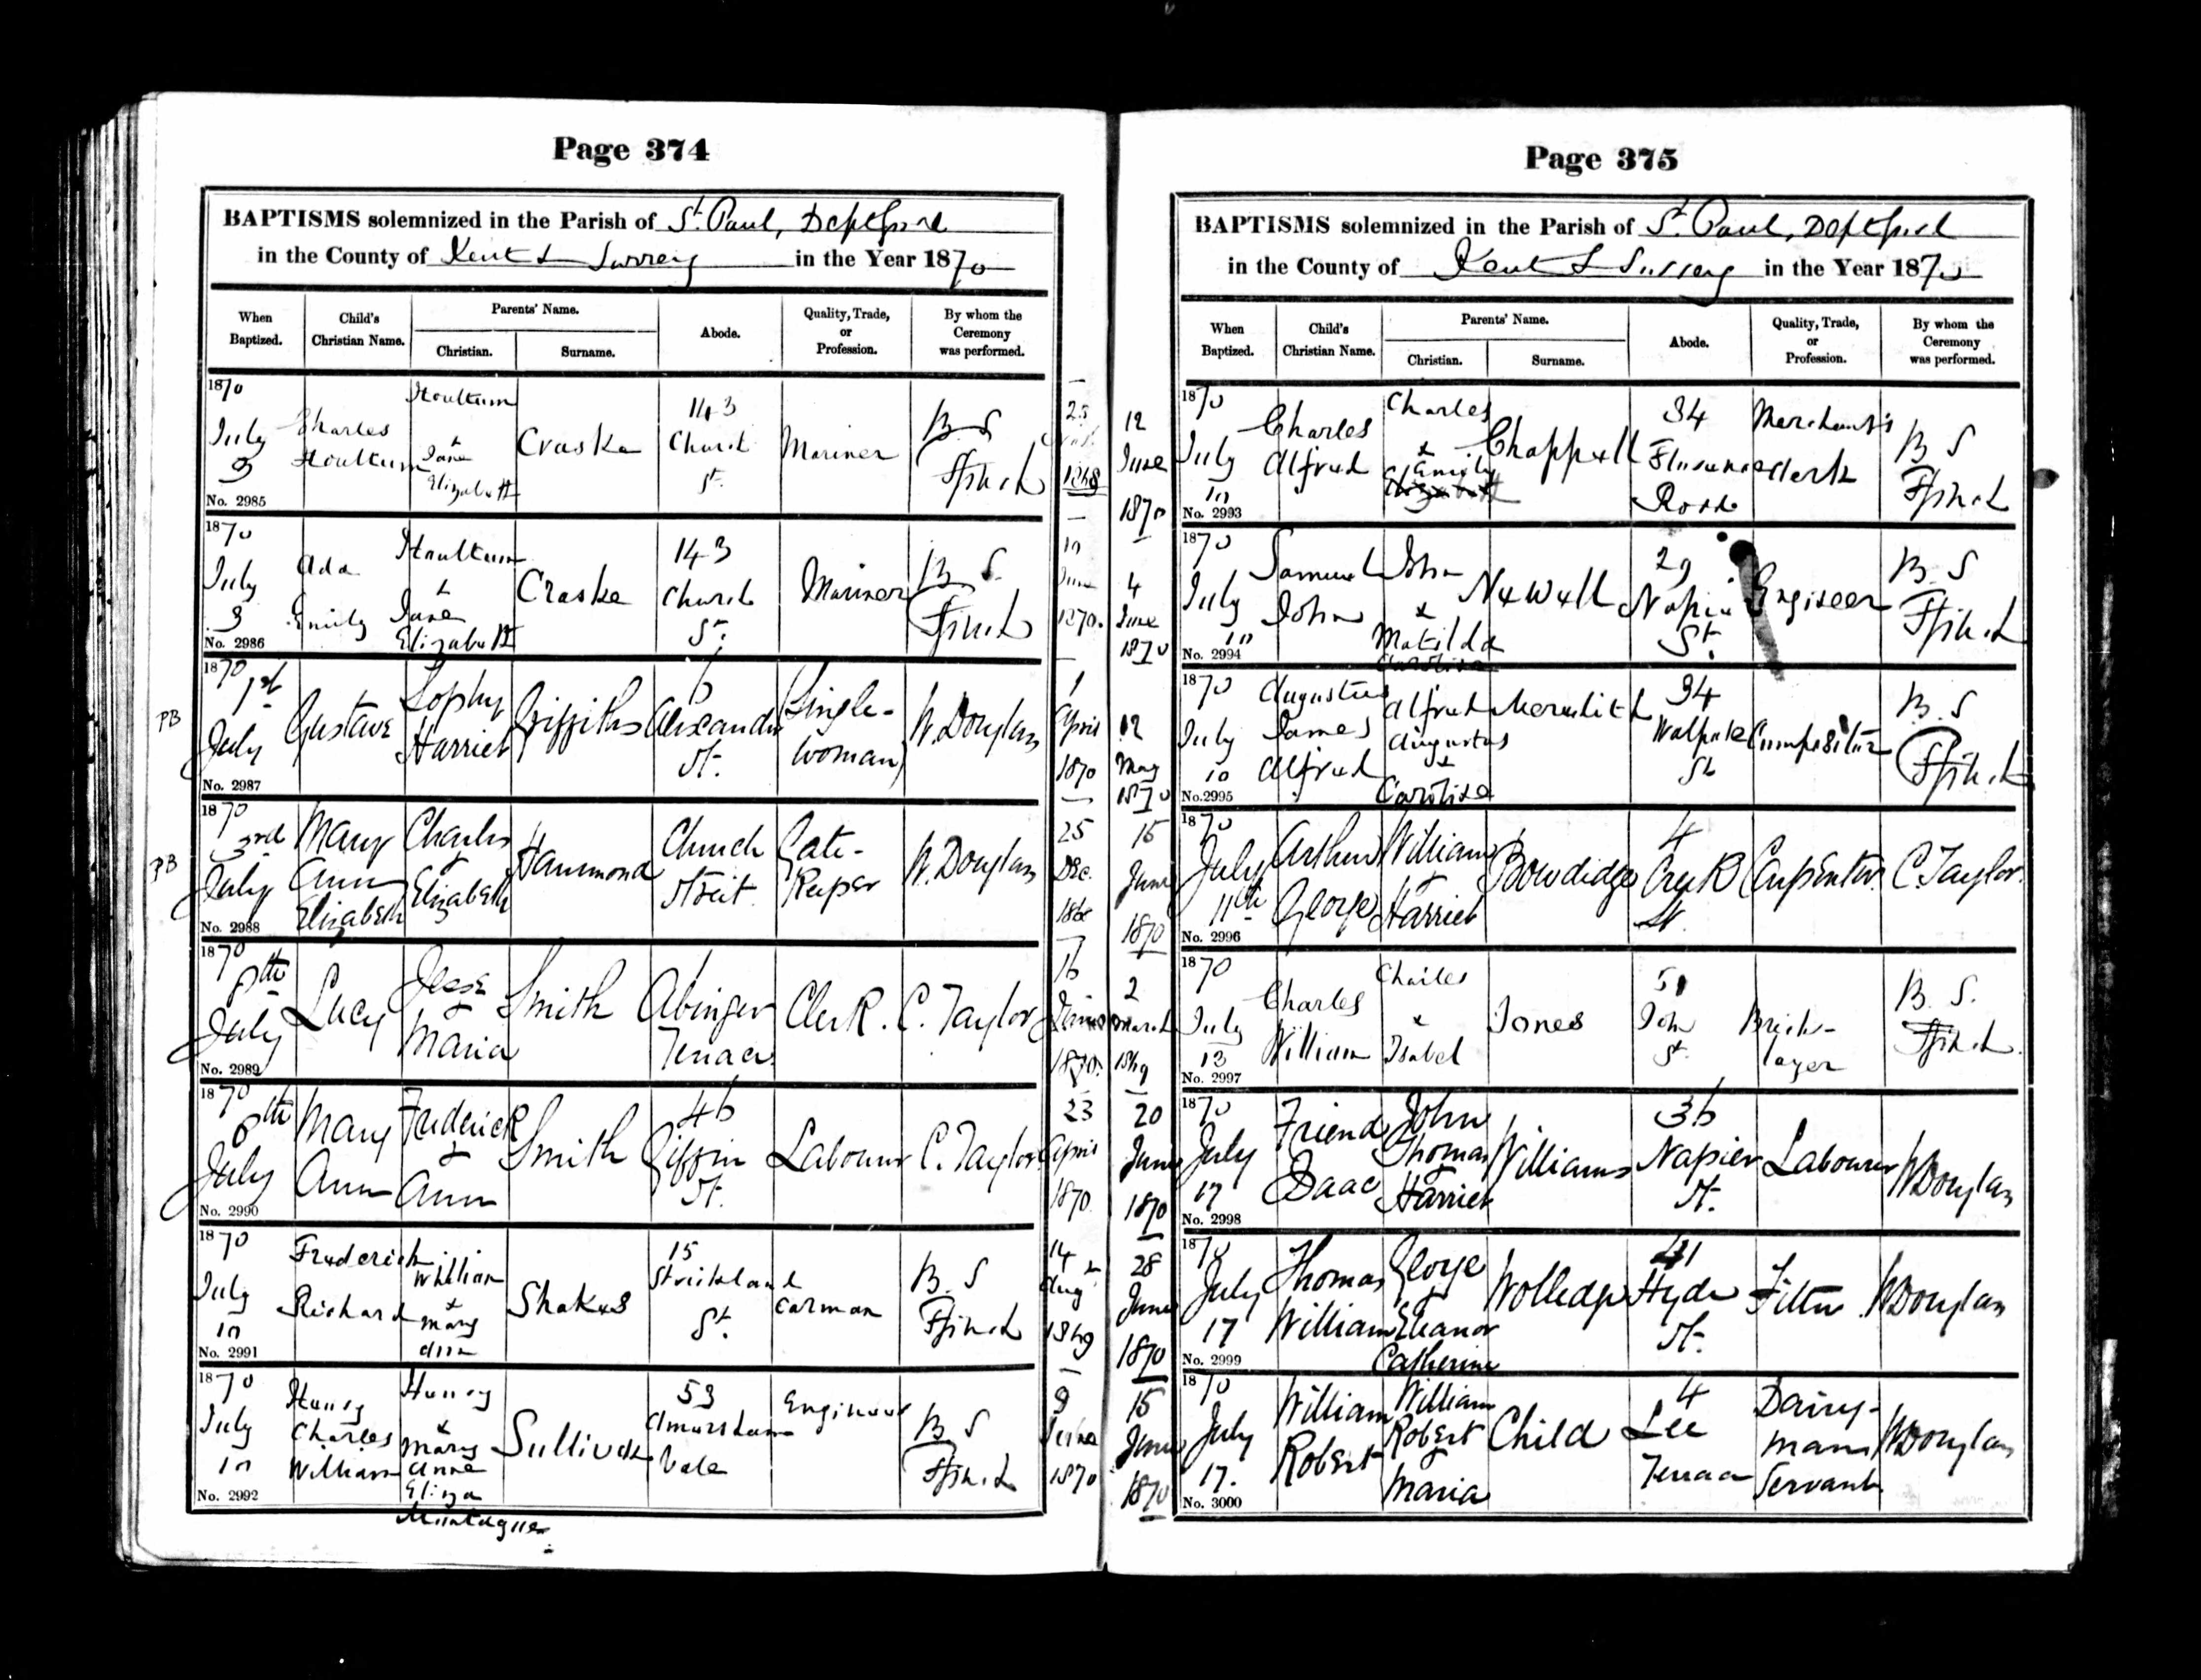 Page 374
BAPTISMS solemnized in the Parish of St. Paul, Deptford
in the County of Kent & Surrey in the Year 1870
When Baptized. Child's Christian Name. Parents' Name. Christian. Surname. Abode. Quality, Trade, or Profession. By whom the Ceremony was performed.
1870 July 3 No. 2985
Charles Houltum
Houltum & Jane Elizabeth
Craske
143 Church St.
Mariner
B. S. Ffinch
25 1868
1870 July 3 No. 2986
Ada Emily
Houltum & Jane Elizabeth
Craske
143 Church St.
Mariner
B. S. Ffinch
10 June 1870.
PB
1870 1st July No. 2987
Gustave
Sophy Harriet
Griffiths
6 Alexander St.
Single-woman
W. Douglas
1 April 1870
PB
1870 3rd July No. 2988
Mary Ann Elizabeth
Charles & Elizabeth
Hammond
Church Street
Gate-Keeper
W. Douglas
25 Dec.
1870 8th July No. 2989
Lucy
Jesse & Maria
Smith
1 Abinger Terrace
Clerk.
C. Taylor
16 1870.
1870 8th July No. 2990
Mary Ann
Frederick & Ann
Smith
46 Giffin St.
Labourer
C. Taylor.
23 April 1870.
1870 July 10 No. 2991
Frederick Richard
William & Mary Ann
Shakes
15 Strickland St.
Carman
B. S Ffinch
14 Aug 1869
1870 July 10 No. 2992
Henry Charles William
Henry & Mary Anne Eliza Montague
Sullivan
53 Amersham Vale
Engineer
B. S Ffinch
9 June 1870
Page 375
BAPTISMS solemnized in the Parish of St. Paul, Deptford
in the County of Kent & Surrey in the Year 1870
When Baptized. Child's Christian Name. Parents' Name. Christian. Surname. Abode. Quality, Trade, or Profession. By whom the Ceremony was performed.
12 June 1870
1870 July 10 No. 2993
Charles Alfred
Charles & Emily
Chappell
34 Florence Road
Merchant's Clerk
B. S Ffinch
4 June 1870
1870 July 10 No. 2994
Samuel John
John & Matilda Caroline
Newell
29 Napier St.
Engineer
B. S Ffinch
12 May 1870
1870 July 10 No. 2995
Augustus James Alfred
Alfred Augustus & Caroline
Meredith
34 Walpole St
Compositor
B. S Ffinch
15 June 1870
1870 July 11th No. 2996
Arthur George
William & Harriet
Bowdidge
4 Creek St.
Carpenter.
C. Taylor.
2 March 1869
1870 July 13 No. 2997
Charles William
Charles & Isabel
Jones
51 John St.
Brick-layer
B. S. Ffinch.
20 June 1870
1870 July 17 No. 2998
Friend Isaac
John Thomas & Harriet
Williams
36 Napier St.
Labourer
W Douglas
28 June 1870
1870 July 17 No. 2999
Thomas William
George & Eleanor Catherine
Wolledge
41 Hyde St.
Fitter
W Douglas
15 June 1870
1870 July 17. No. 3000
William Robert
William Robert & Maria
Child
4 Lee Terrace
Dairy-man Servant
W Douglas